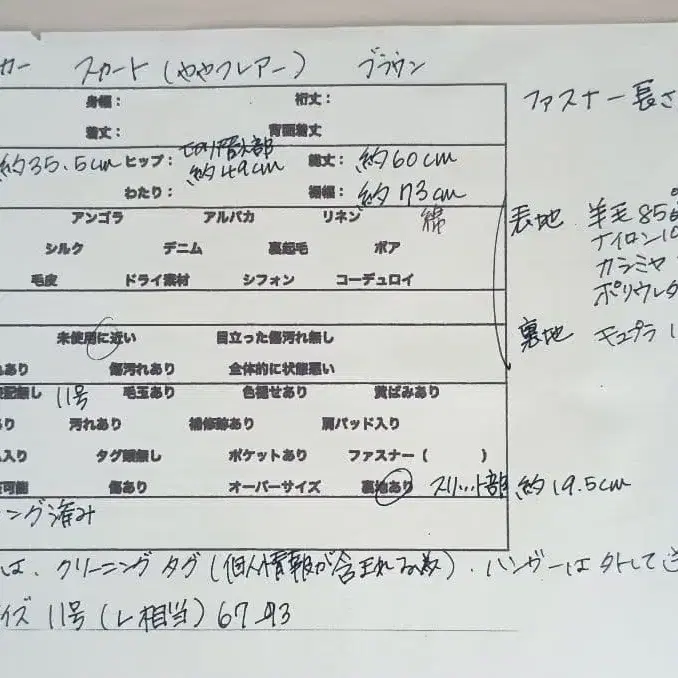 カー スカート(ややフレアー) ブラウン
身幅: 裄丈: ファスナー長さ
着丈: 背面着丈
約35.5cm ヒップ: 切り替え部 約49cm 総丈: 約60cm
わたり: 裾幅: 約73cm
アンゴラ アルパカ リネン 綿 表地 羊毛85
シルク デニム 裏起毛 ボア ナイロン10
毛皮 ドライ素材 シフォン コーデュロイ カシミヤ
ポリウレタ
未使用に近い 目立った傷汚れ無し 裏地 キュプラ1
あり 傷汚れあり 全体的に状態悪い
表記無し 11号 毛玉あり 色褪せあり 黄ばみあり
り 汚れあり 補修跡あり 肩パッド入り
入り タグ類無し ポケットあり ファスナー( )
可能 傷あり オーバーサイズ 裏地あり スリット部 約19.5cm
ング済み
は、クリーニングタグ(個人情報が含まれる為)、ハンガーは外して送
イズ 11号(L相当)67-93